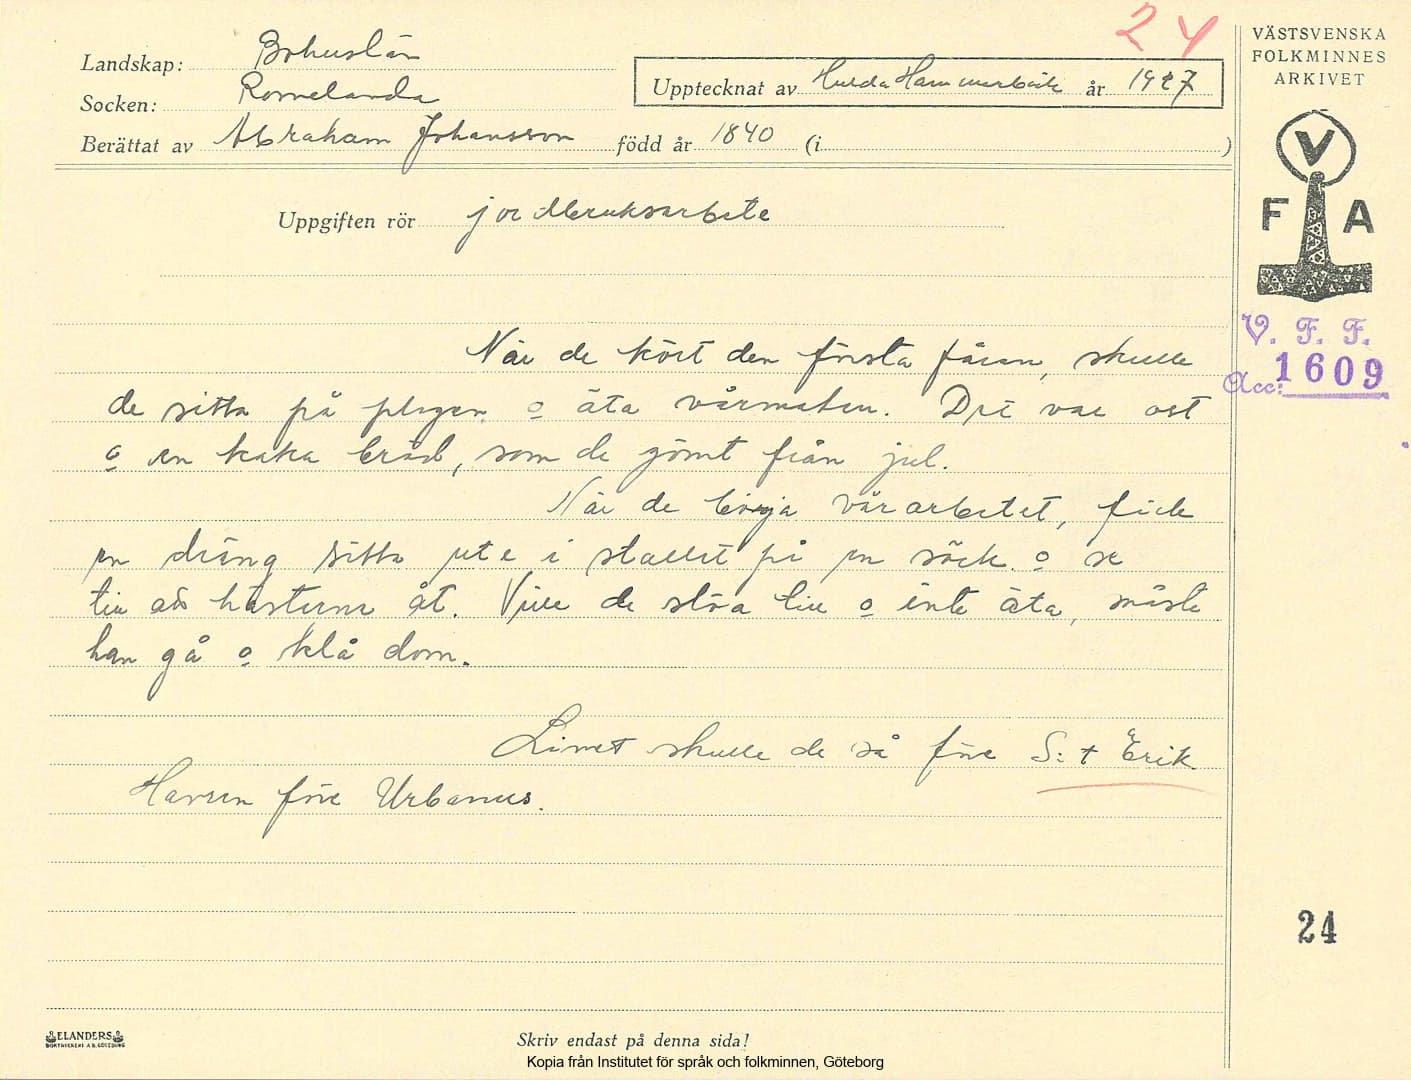 24
Landskap: Bohuslän
Socken: Romelanda
Upptecknat av Hulda Hammarbäck år 1927
Berättat av Abraham Johansson född år 1840 (i )
Uppgiften rör jordbruksarbete
När de kört den första fåran, skulle
de sitta på plogen o äta vårmaten. Det var ost
o en kaka bröd, som de gömt från jul.
När de börja vårarbetet, fick
en dräng sitta ute i stallet på en säck o se
till att hästerna åt. Ville de slöa till o inte äta, måste
han gå o klå dom.
Linet skulle de så före S:t Erik
Havren före Urbanus.
ELANDERS
BOKTRYCKERI A.B. GÖTEBORG
Skriv endast på denna sida!
Kopia från Institutet för språk och folkminnen, Göteborg
VÄSTSVENSKA
FOLKMINNES
ARKIVET
V
F A
V. F. F.
Acc: 1609
24